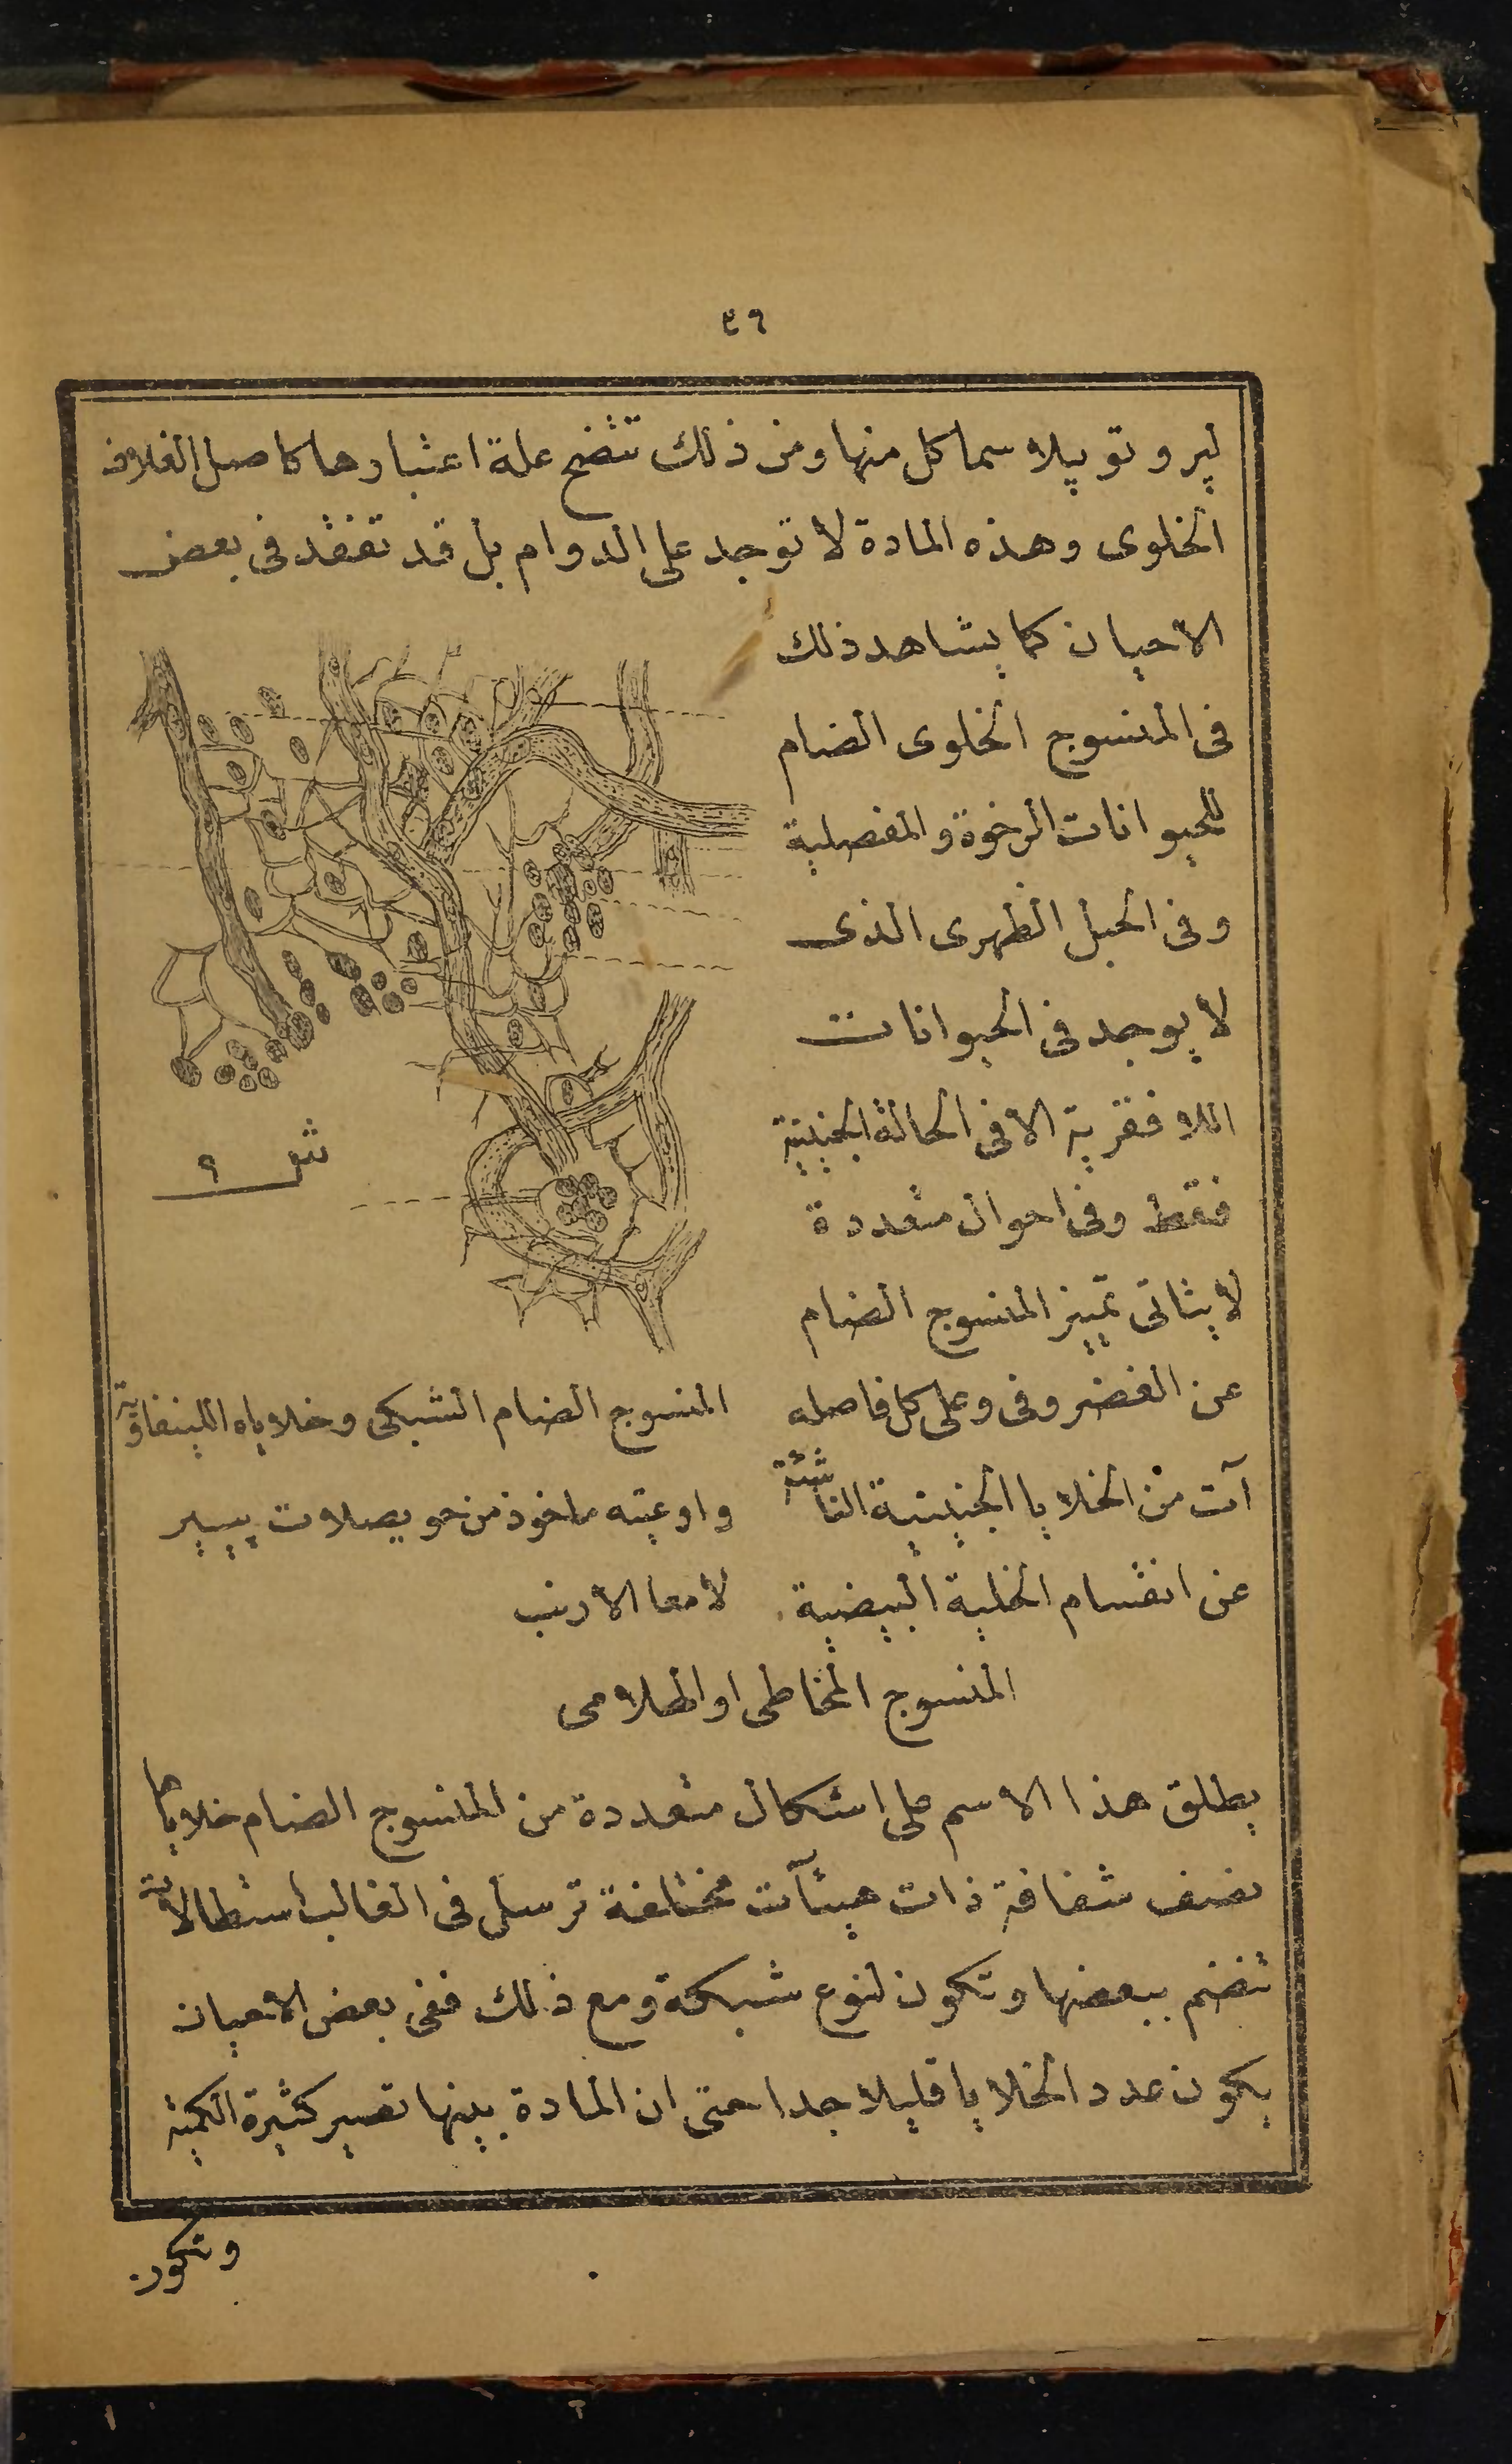 ٤٦
لپروتوپلاسما كل منها ومن ذلك تتضح علة اعتبارها كاصل الغلاف
الخلوى وهذه المادة لا توجد على الدوام بل قد تفقد فى بعض
الاحيان كما يشاهد ذلك
فى المنسوج الخلوى الضام
للحيوانات الرخوة والمفصلية
وفى الحبل الظهرى الذى
لا يوجد فى الحيوانات
اللافقرية الا فى الحالة الجنينية
فقط وفى احوال متعددة
لا يتاتى تمييز المنسوج الضام
عن الغضروفى وعلى كل فاصله
آت من الخلايا الجنينية الناشئة
عن انقسام الخلية البيضية
ش ٩
المنسوج الضام الشبكى وخلاياه اللينفاوية
واوعيته ماخوذ من حويصلات پيير
لامعا الارنب
المنسوج المخاطى او الهلامى
يطلق هذا الاسم على اشكال متعددة من المنسوج الضام خلاياها
نصف شفافة ذات هيئآت مختلفة ترسل فى الغالب استطالات
تنضم ببعضها وتكون لنوع شبكة ومع ذلك ففى بعض الاحيان
يكون عدد الخلايا قليلا جدا حتى ان المادة بينها تصير كثيرة الكمية
وتكون